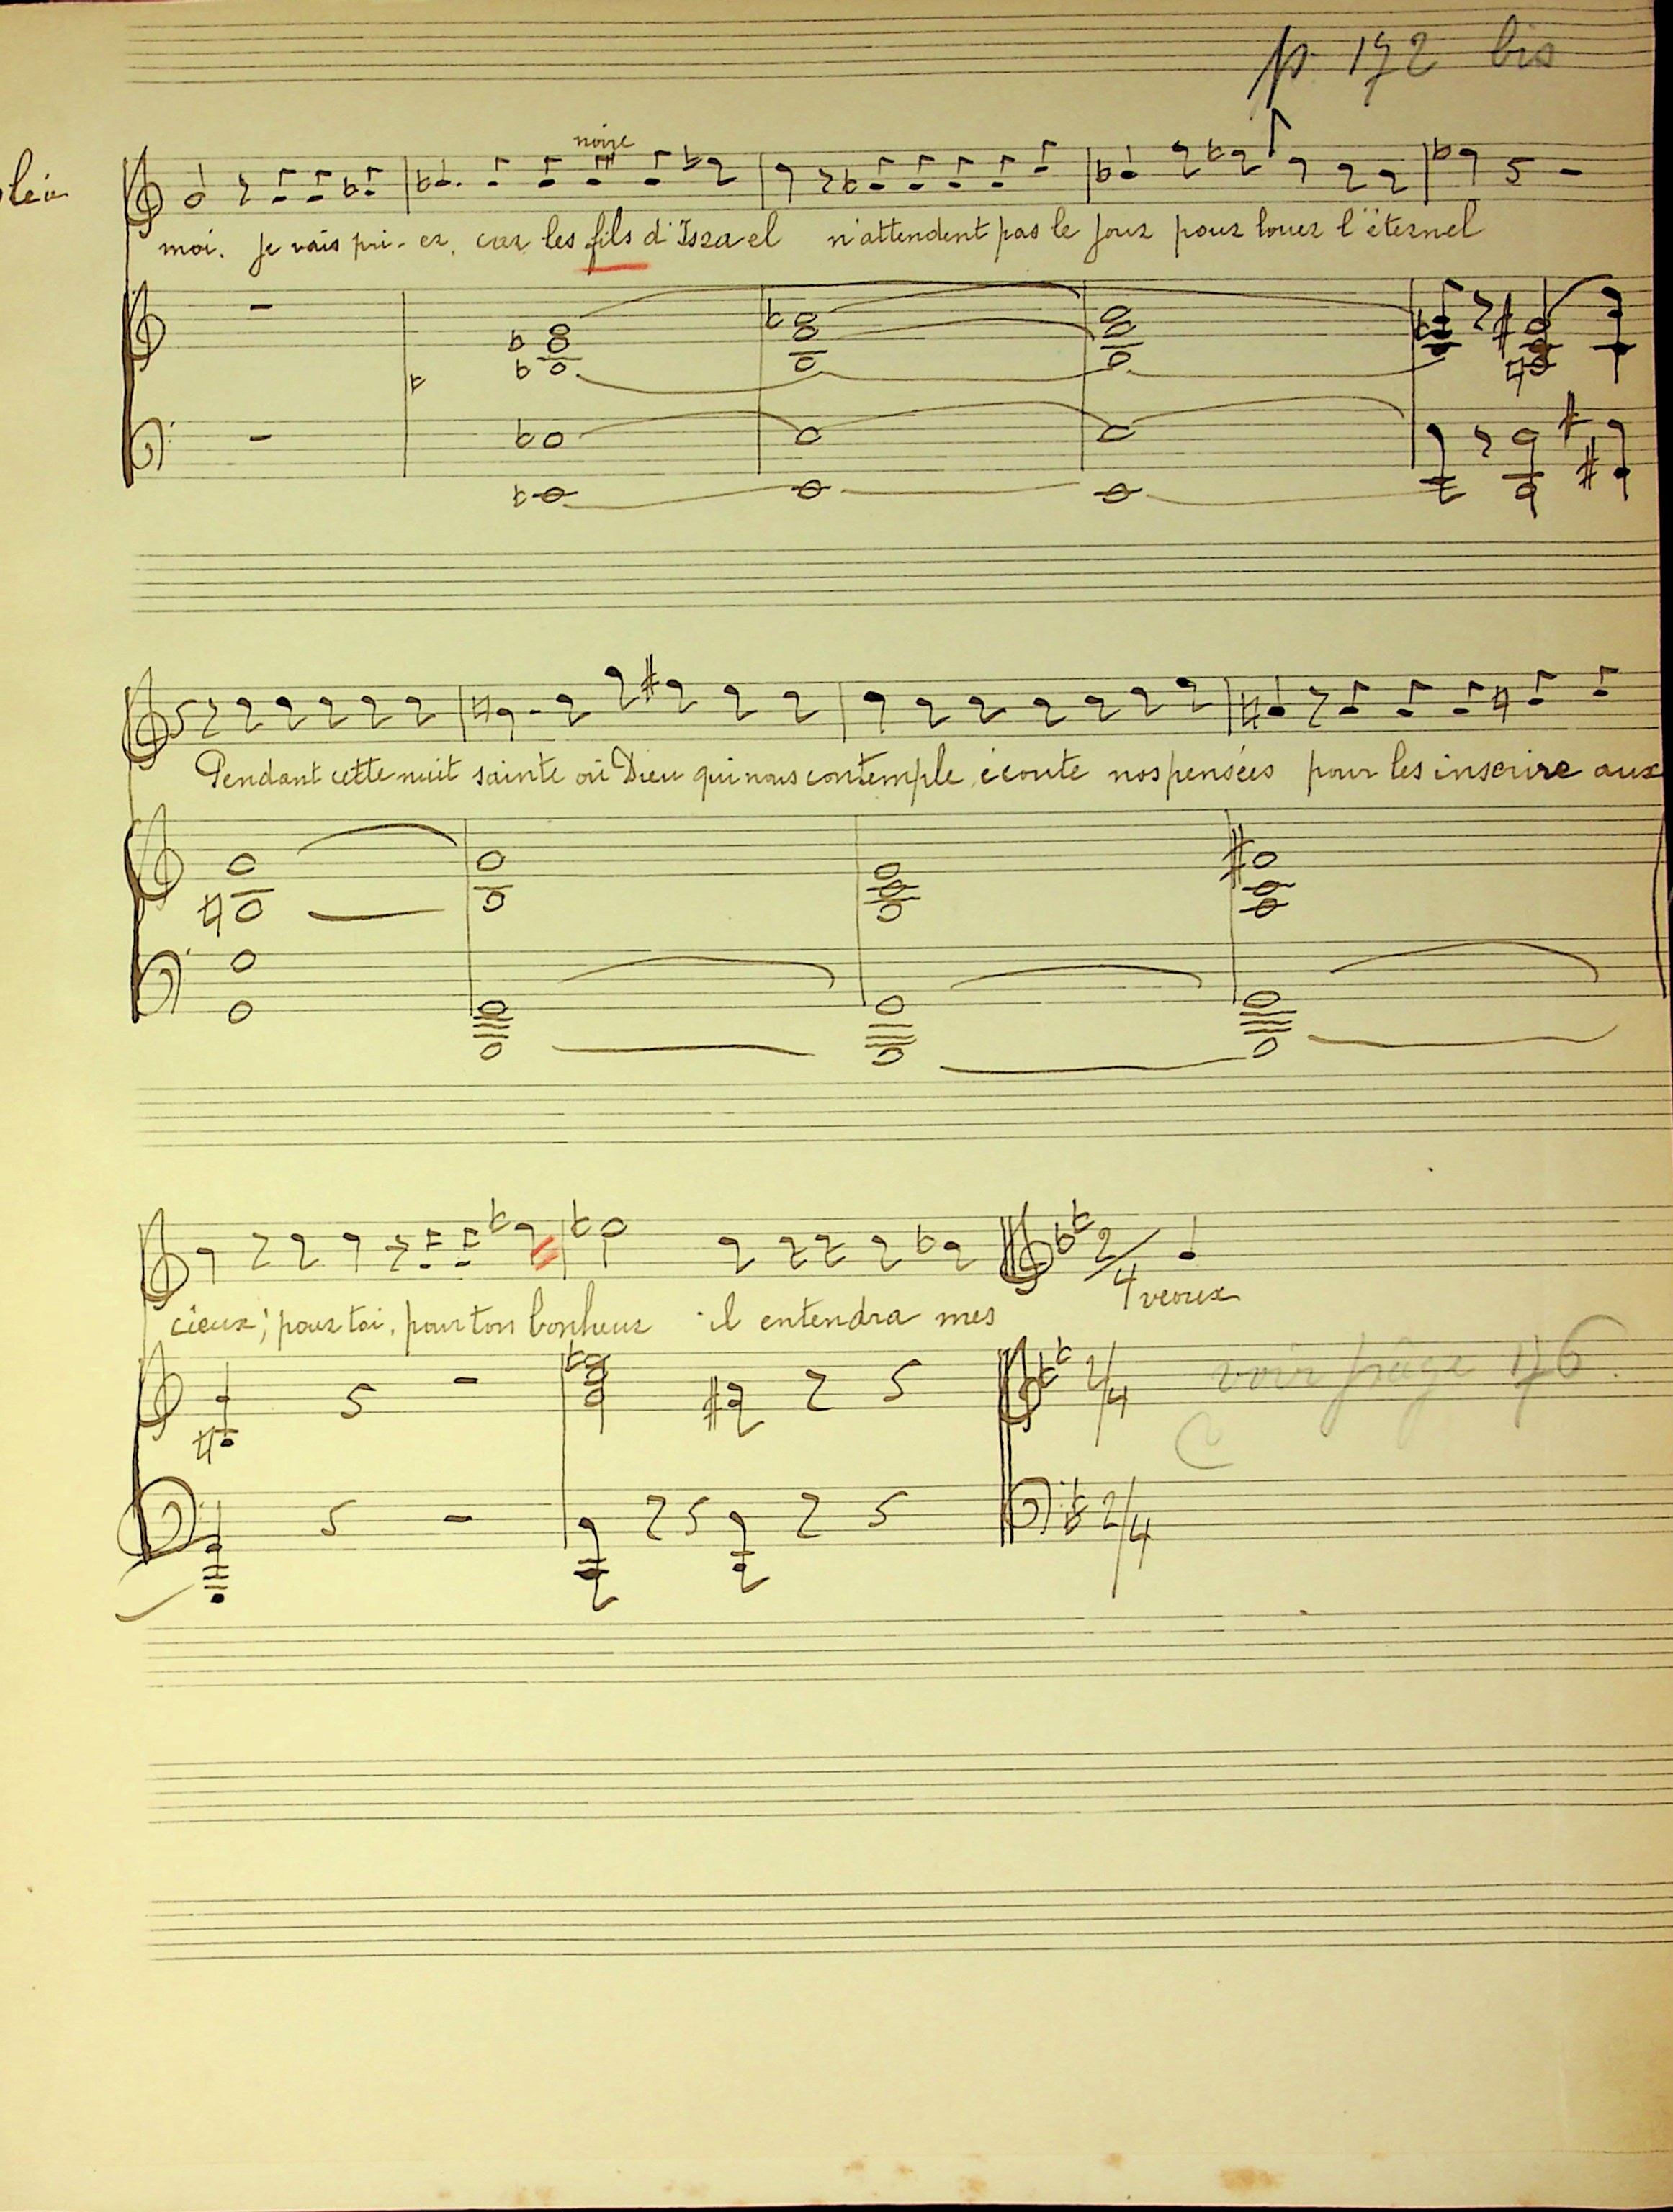 p. 172 bis
noire
moi. Je vais pri-er, car les fils d'Israel n'attendent pas le jour pour louer l'éternel
Pendant cette nuit sainte où Dieu qui nous contemple, écoute nos pensées pour les inscrire aux
2/4 veoux
cieux; pour toi, pour ton bonheur il entendra mes
voir page 176
2/4
C
2/4